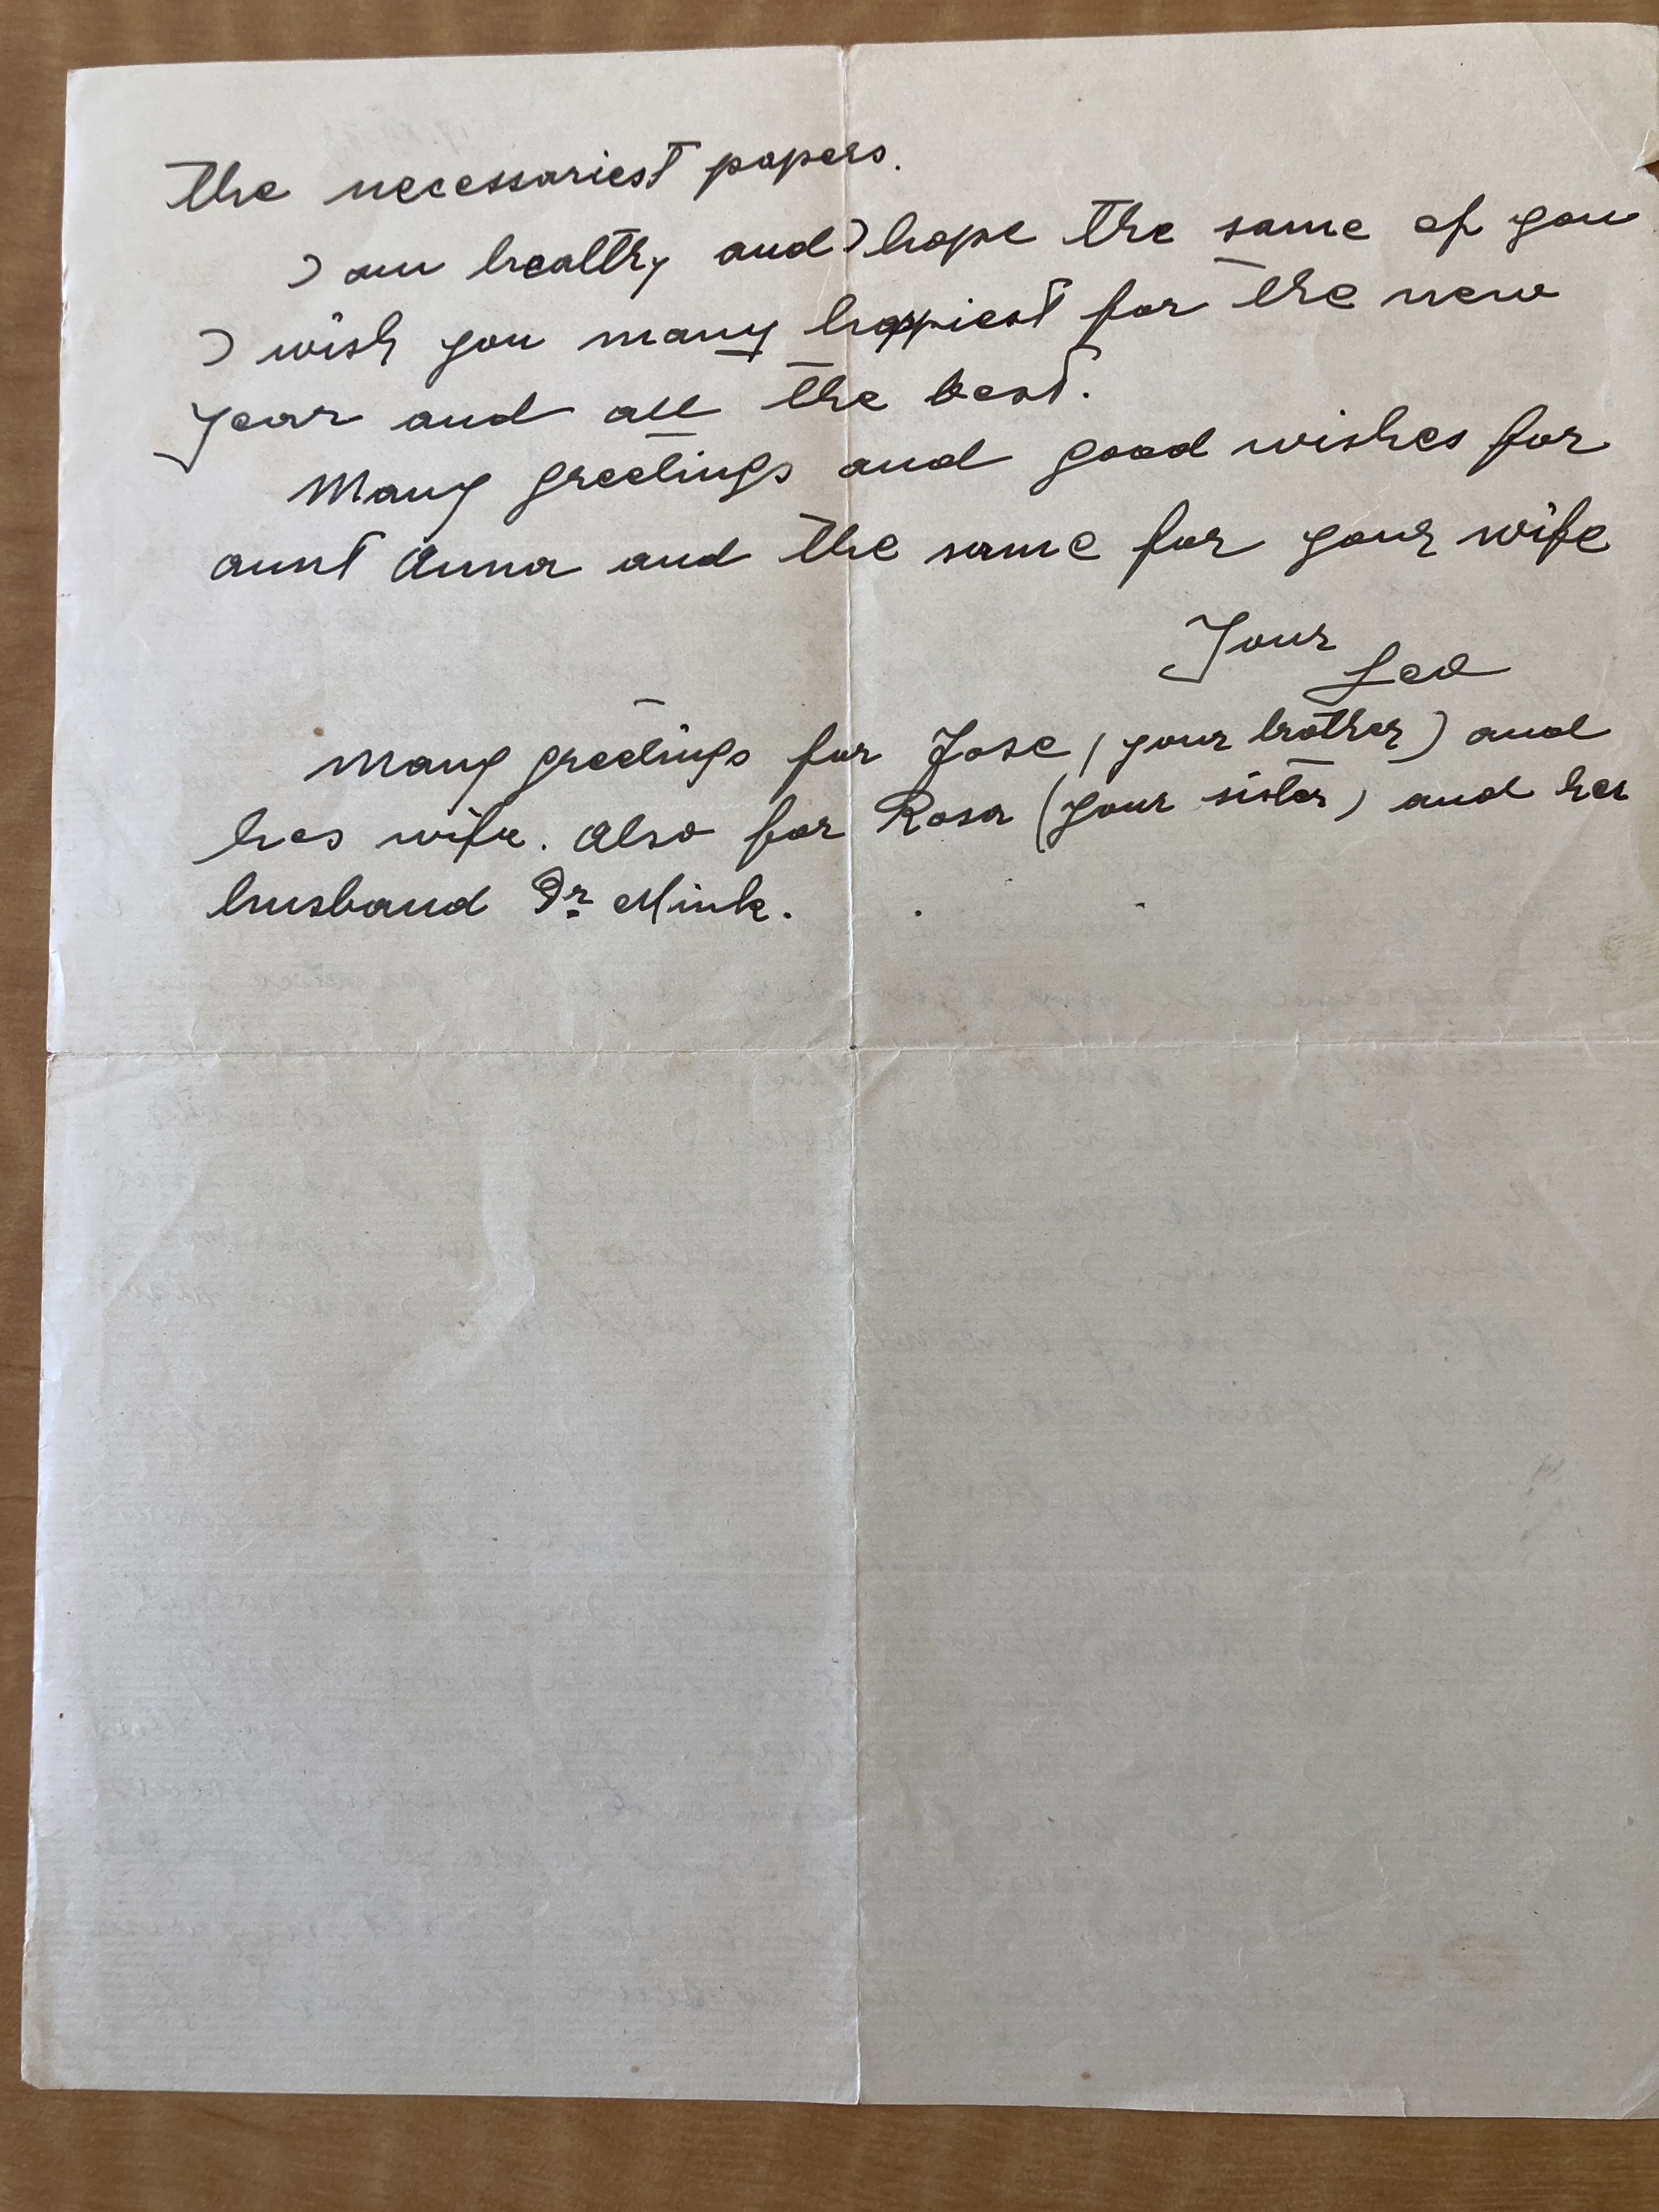 the necessariest papers.
I am healthy and I hope the same of you
I wish you many happiest for the new
year and all the best.
Many greetings and good wishes for
aunt Anna and the same for your wife
Your
Leo
Many greetings for Jose (your brother) and
hes wife. Also for Rosa (your sister) and her
husband Dr Mink.